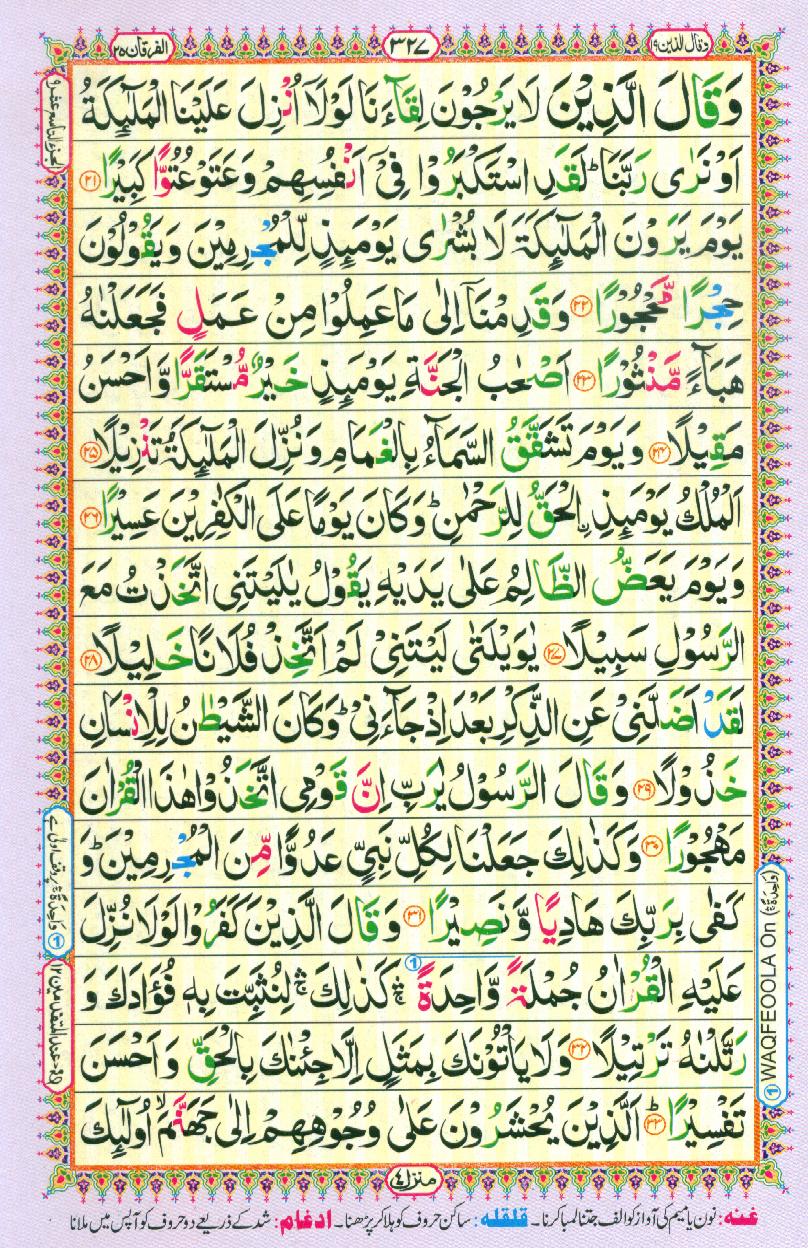 وقال الذين ١٩
٣٢٧
الفرقان ٢٥
وَقَالَ الَّذِيْنَ لَا يَرْجُوْنَ لِقَآءَنَا لَوْلَاۤ اُنْزِلَ عَلَيْنَا الْمَلٰٓئِكَةُ
اَوْ نَرٰى رَبَّنَا ؕ لَقَدِ اسْتَكْبَرُوْا فِيْۤ اَنْفُسِهِمْ وَعَتَوْ عُتُوًّا كَبِيْرًا ٢١
يَوْمَ يَرَوْنَ الْمَلٰٓئِكَةَ لَا بُشْرٰى يَوْمَئِذٍ لِّلْمُجْرِمِيْنَ وَيَقُوْلُوْنَ
حِجْرًا مَّحْجُوْرًا ٢٢ وَقَدِمْنَاۤ اِلٰى مَا عَمِلُوْا مِنْ عَمَلٍ فَجَعَلْنٰهُ
هَبَآءً مَّنْثُوْرًا ٢٣ اَصْحٰبُ الْجَنَّةِ يَوْمَئِذٍ خَيْرٌ مُّسْتَقَرًّا وَّاَحْسَنُ
مَقِيْلًا ٢٤ وَيَوْمَ تَشَقَّقُ السَّمَآءُ بِالْغَمَامِ وَنُزِّلَ الْمَلٰٓئِكَةُ تَنْزِيْلًا ٢٥
اَلْمُلْكُ يَوْمَئِذِ اِ۟لْحَقُّ لِلرَّحْمٰنِ ؕ وَكَانَ يَوْمًا عَلَى الْكٰفِرِيْنَ عَسِيْرًا ٢٦
وَيَوْمَ يَعَضُّ الظَّالِمُ عَلٰى يَدَيْهِ يَقُوْلُ يٰلَيْتَنِى اتَّخَذْتُ مَعَ
الرَّسُوْلِ سَبِيْلًا ٢٧ يٰوَيْلَتٰى لَيْتَنِيْ لَمْ اَتَّخِذْ فُلَانًا خَلِيْلًا ٢٨
لَقَدْ اَضَلَّنِيْ عَنِ الذِّكْرِ بَعْدَ اِذْ جَآءَنِيْ ؕ وَكَانَ الشَّيْطٰنُ لِلْاِنْسَانِ
خَذُوْلًا ٢٩ وَقَالَ الرَّسُوْلُ يٰرَبِّ اِنَّ قَوْمِى اتَّخَذُوْا هٰذَا الْقُرْاٰنَ
مَهْجُوْرًا ٣٠ وَكَذٰلِكَ جَعَلْنَا لِكُلِّ نَبِيٍّ عَدُوًّا مِّنَ الْمُجْرِمِيْنَ ؕ وَ
كَفٰى بِرَبِّكَ هَادِيًا وَّنَصِيْرًا ٣١ وَقَالَ الَّذِيْنَ كَفَرُوْا لَوْلَا نُزِّلَ
عَلَيْهِ الْقُرْاٰنُ جُمْلَةً وَّاحِدَةً ۛۚ كَذٰلِكَ ۛۚ لِنُثَبِّتَ بِهٖ فُؤَادَكَ وَ
رَتَّلْنٰهُ تَرْتِيْلًا ٣٢ وَلَا يَاْتُوْنَكَ بِمَثَلٍ اِلَّا جِئْنٰكَ بِالْحَقِّ وَاَحْسَنَ
تَفْسِيْرًا ؕ ٣٣ اَلَّذِيْنَ يُحْشَرُوْنَ عَلٰى وُجُوْهِهِمْ اِلٰى جَهَنَّمَ ۙ اُولٰٓئِكَ
منزل ٤
غنه: نون یا میم کی آواز کو الف جتنا لمبا کرنا۔ قلقله: ساکن حروف کو ہلا کر پڑھنا۔ ادغام: شد کے ذریعے دو حروف کو آپس میں ملانا
① WAQFEOOLA On (وَاحِدَةً ۛۚ)